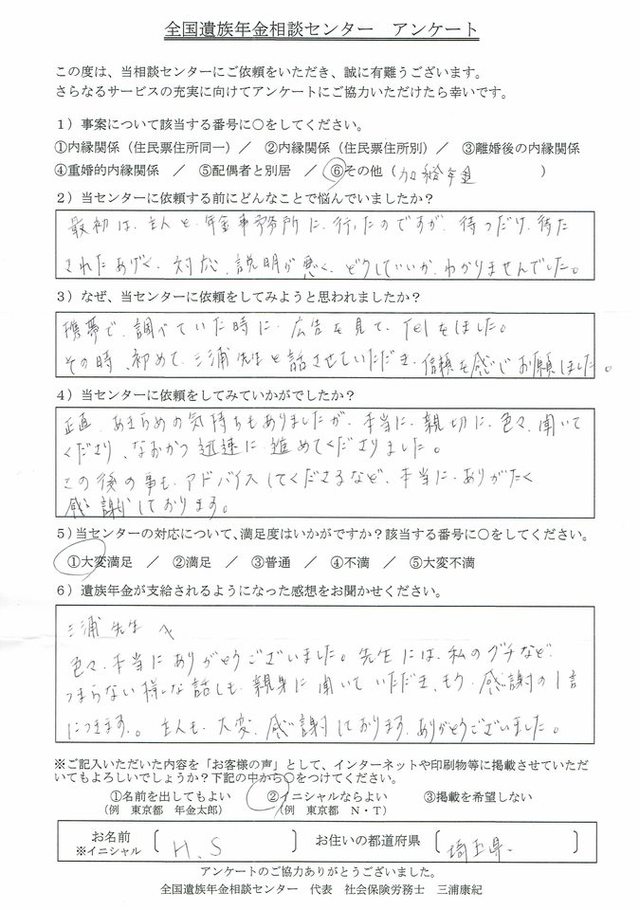 全国遺族年金相談センター　アンケート
この度は、当相談センターにご依頼をいただき、誠に有難うございます。
さらなるサービスの充実に向けてアンケートにご協力いただけたら幸いです。
1）事案について該当する番号に○をしてください。
①内縁関係（住民票住所同一）／　②内縁関係（住民票住所別）／　③離婚後の内縁関係
④重婚的内縁関係　／　⑤配偶者と別居　／　⑥その他（加給年金　　　）
2）当センターに依頼する前にどんなことで悩んでいましたか？
最初は、主人と、年金事務所に、行ったのですが、待つだけ、待た
されたあげく、対応、説明が悪く、どうしていいか、わかりませんでした。
3）なぜ、当センターに依頼をしてみようと思われましたか？
携帯で、調べていた時に、広告を見て、Telをしました。
その時、初めて、三浦先生と話させていただき、信頼を感じお願しました。
4）当センターに依頼をしてみていかがでしたか？
正直、あきらめの気持ちもありましたが、本当に、親切に、色々、聞いて
くださり、なおかつ迅速に進めてくださりました。
この後の事も、アドバイスしてくださるなど、本当に、ありがたく
感謝しております。
5）当センターの対応について、満足度はいかがですか？該当する番号に○をしてください。
①大変満足　／　②満足　／　③普通　／　④不満　／　⑤大変不満
6）遺族年金が支給されるようになった感想をお聞かせください。
三浦先生へ
色々、本当にありがとうございました。先生には、私のグチなど、
つまらない様な話しも、親身に聞いていただき、もう、感謝の1言
につきます。主人も、大変、感謝しております。ありがとうございました。
※ご記入いただいた内容を「お客様の声」として、インターネットや印刷物等に掲載させていただ
いてもよろしいでしょうか？下記の中から○をつけてください。
①名前を出してもよい　　②イニシャルならよい　　③掲載を希望しない
（例　東京都　年金太郎）　（例　東京都　N・T）
お名前　お住いの都道府県
※イニシャル　H.S　埼玉県
アンケートのご協力ありがとうございました。
全国遺族年金相談センター　代表　社会保険労務士　三浦康紀